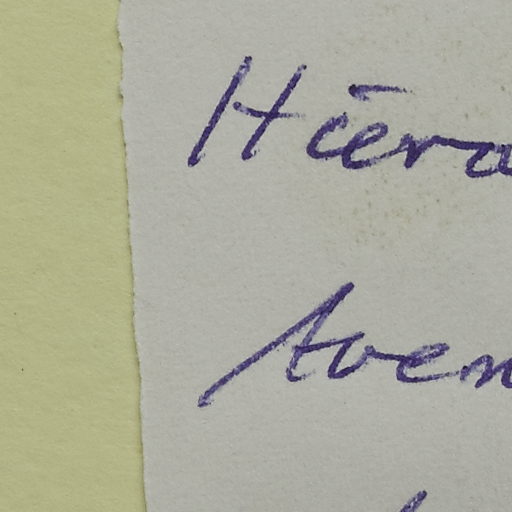 Hiera
Aven